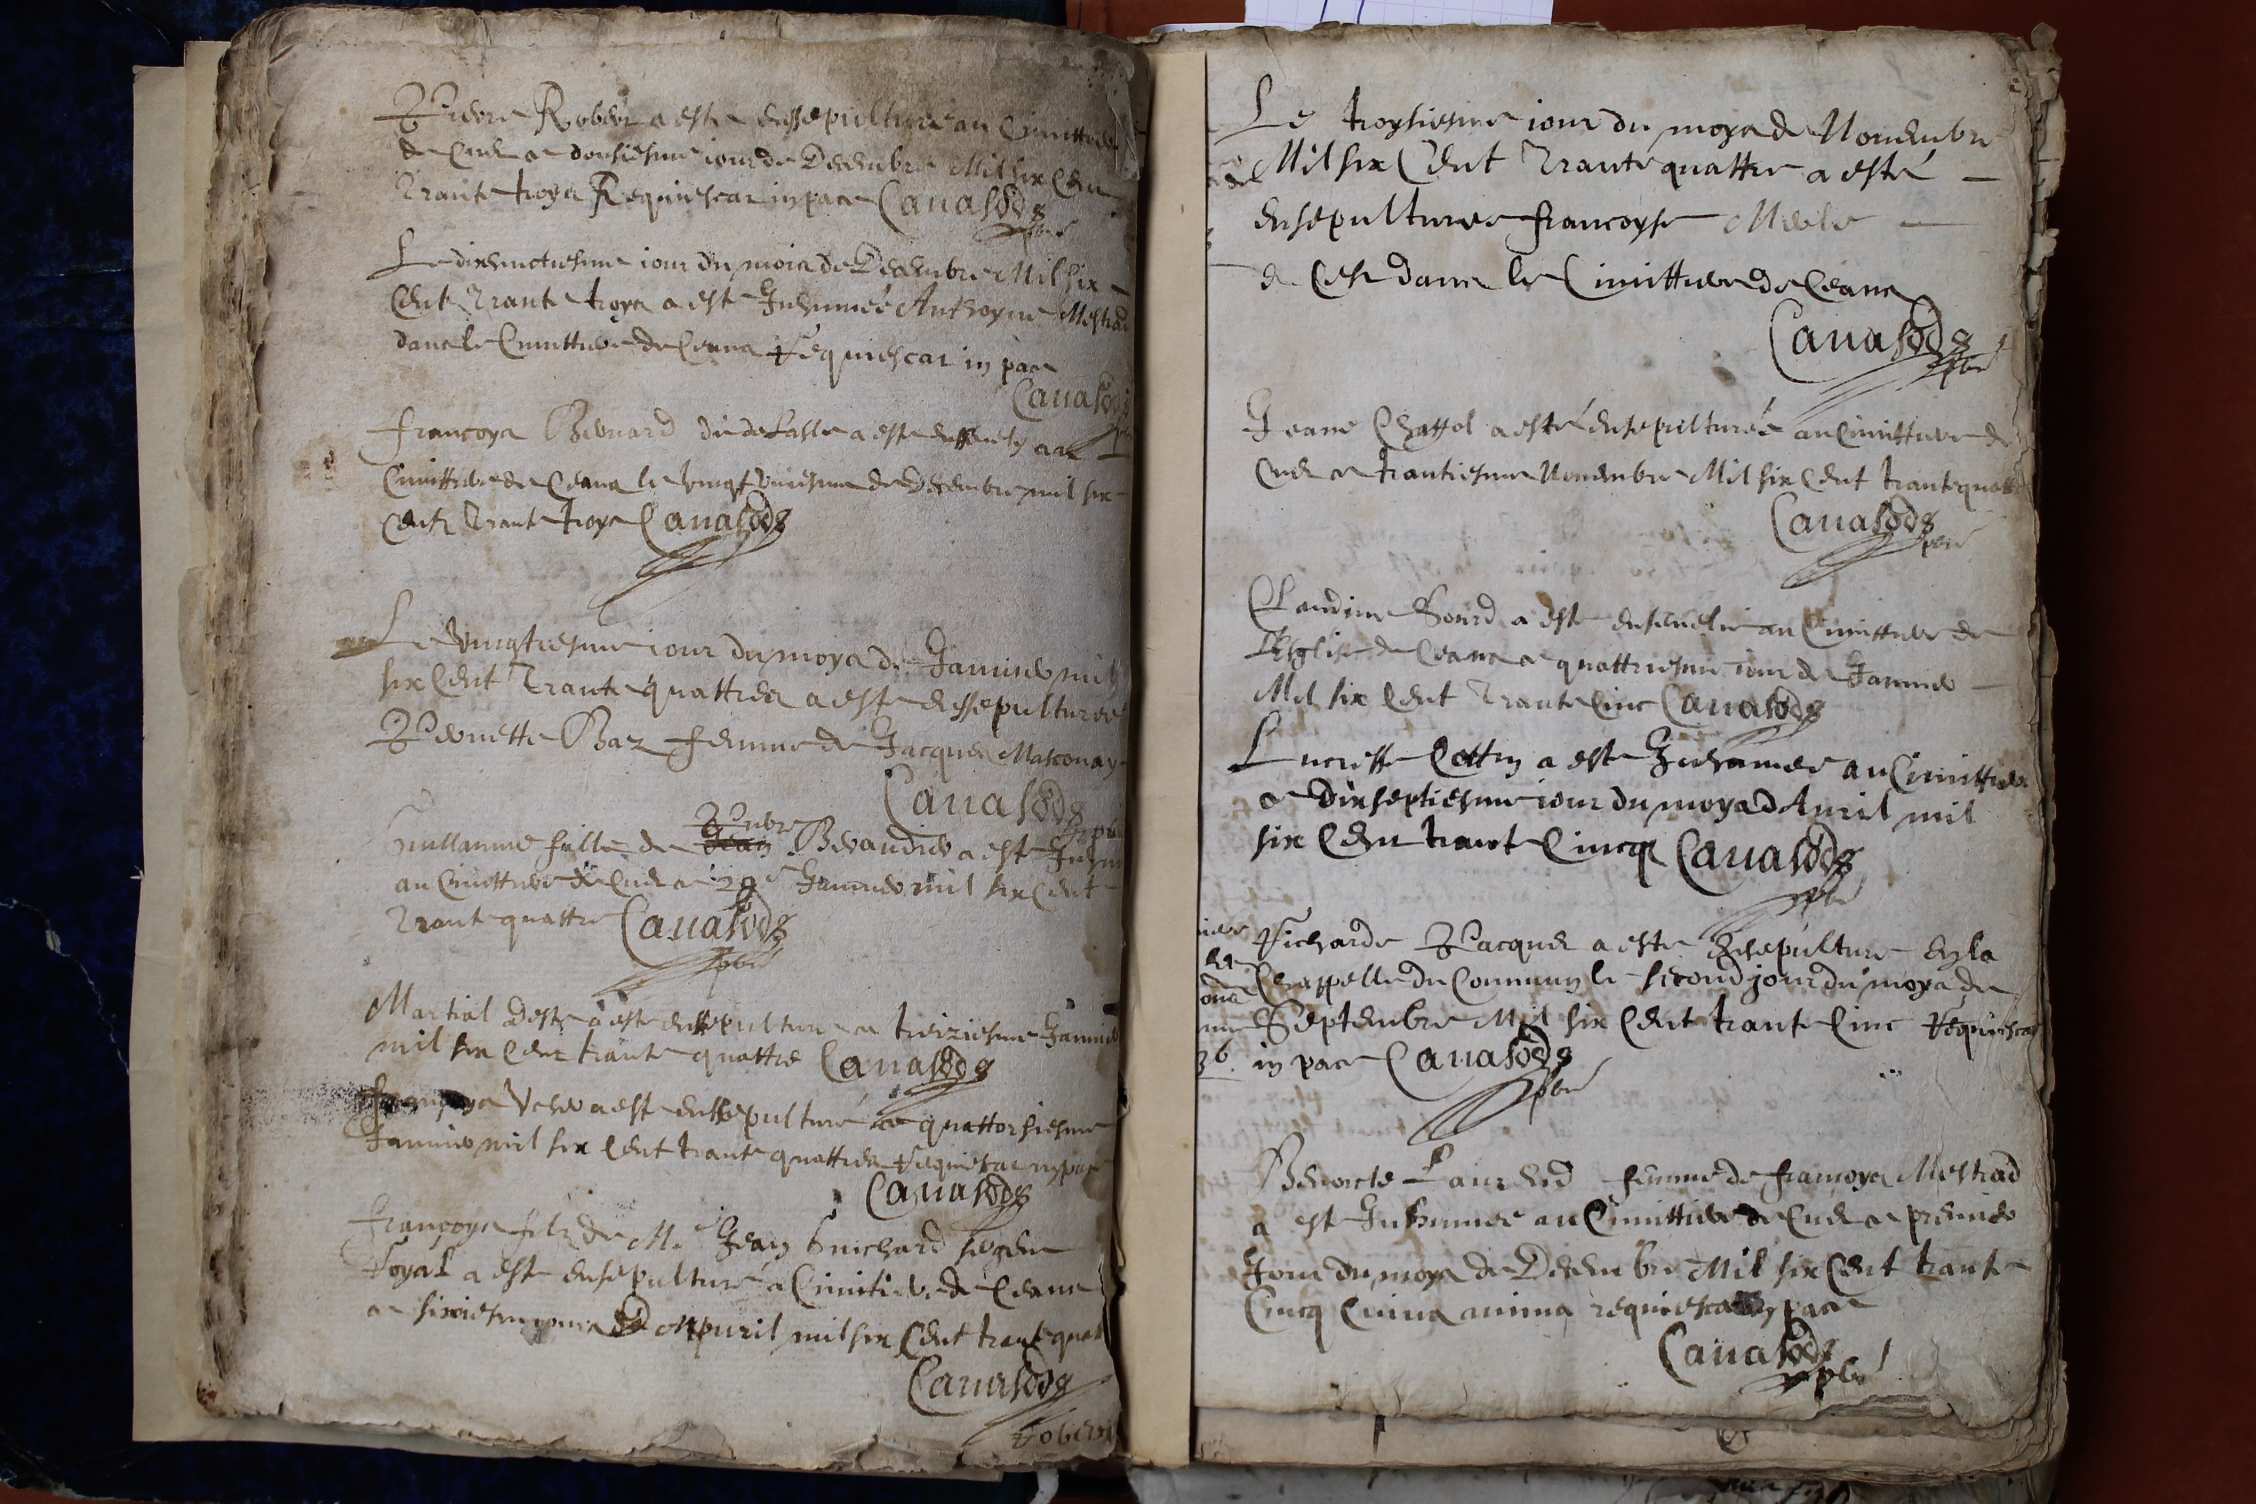 Pierre Robert a este ensepulturé au Cimittiere
de Cus ce dousiesme iour de Decembre Mil six Cent
Trante troys Requiescat in pace Cauasods
pbre
Le dixeuuctiesme iour du mois de Decembre Mil six
Cent Trante troys a este Inhumeé Anthoyne Mestrad
dans le Cimittiere de Ceans Requiescat in pace
Cauasods
francoys Benard dit de Lasse a este ensevely au
Cimittiere de Ceans le vingt uniesme de Decembre mil six
Cent Trante troys Cauasods
Le vingtiesme iour du moys de Januier mil
six Cent Trante quattres a este ensepulturee
Pernette Baz femme de Jacques Masconay
Cauasods
pbre
Guillaume fille de Pierre Beraudier a este Inhum
au Cimittiere de Cus ce 29e Januier mil six Cent
Trante quattre Cauasods
pbre
Martial Deste a este ensepulture ce treiziesme Januier
mil six Cent trante quattre Cauasods
francoys a este ensepulturé ce quattorsiesme
Januier mil six Cent trante quattres Requiescat in pace
Cauasods
Françoys filz de Me Jean Guichard sergent
Royal a este ensepulturé a Cimitiere de Ceans
ce sixiesme iour Apuril mil six Cent trante quat
Cauasods
Le troysiesme iour du moys de Nouembre
Mil six Cent Trante quattre a esté
ensepulturee francoyse Merle
de Cest dans le Cimittiere de Ceans
Cauasods
pbre
Jeane Chattol a esté ensepulturéé au Cimittiere de
Cus ce trantiesme Nouembre Mil six Cent trante quattre
Cauasods
pbre
Claudine Gourd a este enseuelie au Cimittiere de
l'Esglise de Ceans ce quattriesme iour de Januier
Mil six Cent Trante Cinc Cauasods
Lucresse Cottin a este Inhumee au Cimittiere
ce dixseptiesme iour du moys d Auril mil
six Cent trante Cincq Cauasods
pbre
Richarde Pacques a este Ensepulture En la
Chappelle du Commung le second jour du moys de
Septembre Mil six Cent trante Cinc Requiescat
36. in pace Cauasods
pbre
Benoicte Laurend femme de francoys Mestrad
a este Inhumee au Cimittiere de Cus ce premier
Jour du moys de Decembre Mil six Cent trante
Cincq Cuius anima requiescat in pace
Cauasods
pbre